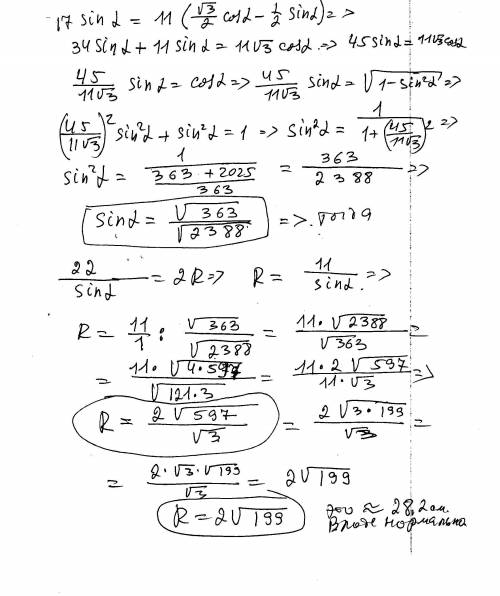 17 sin α = 11 (√3/2 cos α - 1/2 sin α) =>
34 sin α + 11 sin α = 11√3 cos α => 45 sin α = 11√3 cos α
45/11√3 sin α = cos α => 45/11√3 sin α = √1 - sin²α =>
(45/11√3)² sin²α + sin²α = 1 => sin²α = 1/1 + (45/11√3)² =>
sin²α = 1/(363 + 2025/363) = 363/2388 =>
sin α = √363/√2388 => тогда
22/sin α = 2R => R = 11/sin α =>
R = 11/1 : √363/√2388 = 11·√2388/√363 =
= 11·√4·597/√121·3 = 11·2√597/11·√3 =>
R = 2√597/√3 = 2√3·199/√3 =
= 2·√3·√199/√3 = 2√199
R = 2√199
это ≈ 28,2 см.
Вроде нормально